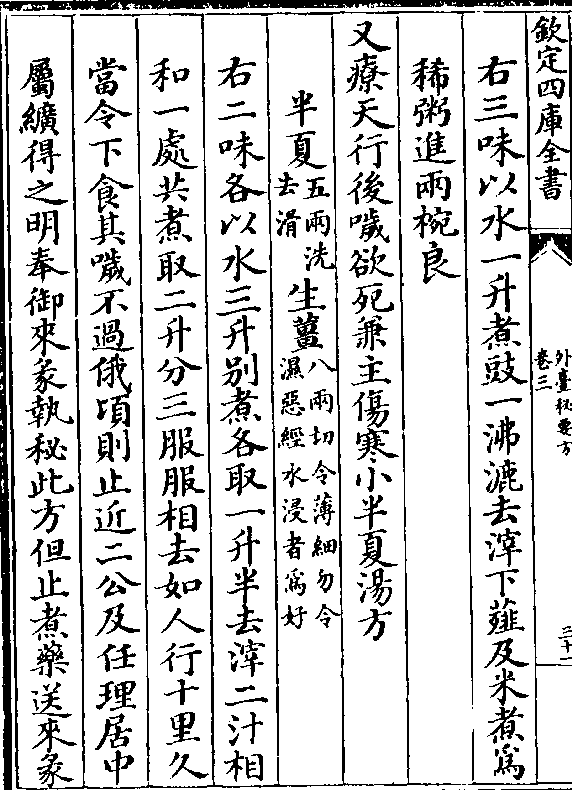 欽定四庫全書
外臺秘要方
卷三
三十一
右三味以水一升煮豉一沸漉去滓下薤及米煮為
稀粥進兩椀良
又療天行後噦欲死兼主傷寒小半夏湯方
半夏五兩洗去滑生薑八兩切令薄細勿令濕惡經水浸者為好
右二味各以水三升別煮各取一升半去滓二汁相
和一處共煮取二升分三服服相去如人行十里久
當令下食其噦不過俄頃則止近二公及任理居中
屬纊得之明奉御來彖執秘此方但止煮藥送來彖